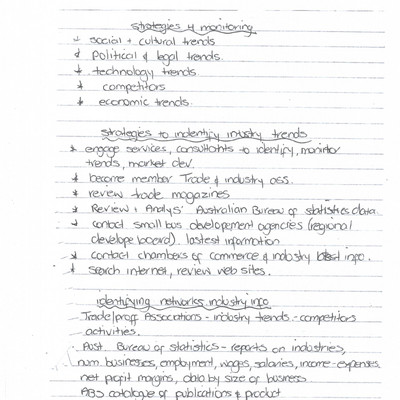 strategies 4 monitoring
social + cultural trends
political & legal trends.
technology trends
competitors
economic trends.
strategies to indentify industry trends
engage services, consultants to identify, monitor
trends, market dev.
become member Trade & industry ass.
review trade magazines
Review & Analys' Australian Bureau of statistics data.
contact small bus developement agencies (regional
develope board). lastest information
contact chambers of commerce & industry latest info.
search internet, review web sites.
identifying networks industry info
Trade/proff Associations - industry trends - competitors
activities.
Aust. Bureau of statistics - reports on industries,
num. businesses, employment, wages, salaries, income - expenses.
net profit margins, data by size of business
ABS catalogue of publications & product